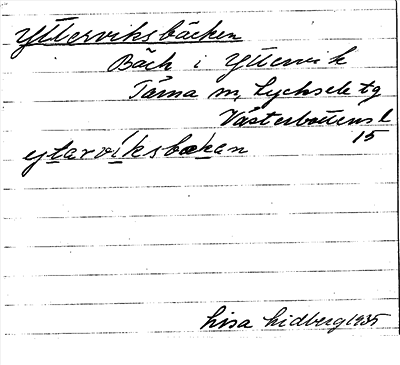 Ytterviksbäcken
Bäck i Yttervik
Tärna sn, Lychsele tg
Västerbottens l
15
ytarviksbækan
Lisa Lidberg 1935